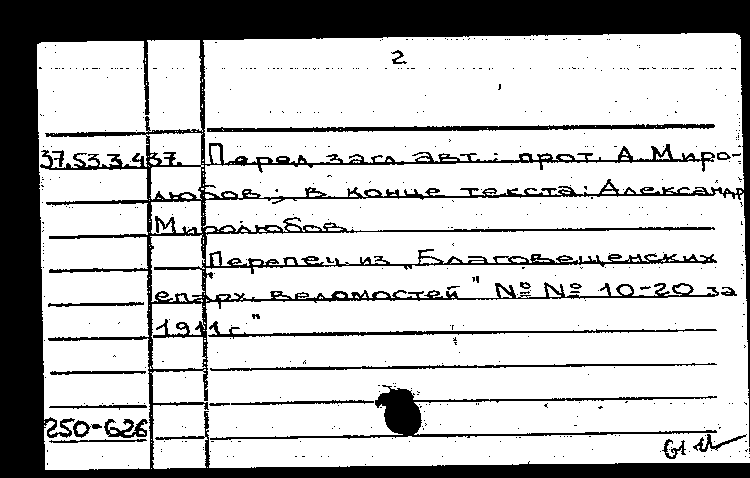 2
37.53.3.437. Перед загл. авт.: прот. А. Миро-
любов; в конце текста: Александр
Миролюбов.
"Перепеч. из "Благовещенских
епарх. ведомостей" №№ 10-20 за
1911 г."
250-626